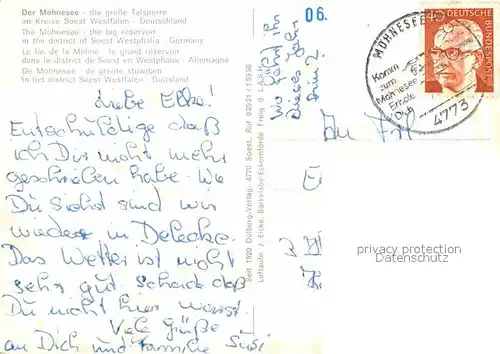 Der Möhnesee - die große Talsperre
im Kreise Soest Westfalen - Deutschland
The Möhnesee - the big reservoir
in the district of Soest Westphalia - Germany
Le lac de la Möhne - le grand réservoir
dans le district de Soest en Westphalie - Allemagne
De Möhnesee - de groote stuwdam
in het district Soest Westfalen - Duitsland
Liebe Elke!
Entschuldige daß
ich Dir nicht mehr
geschrieben habe. Wie
Du siehst sind wir
wieder in Delecke.
Das Wetter ist nicht
sehr gut. Schade daß
Du nicht hier warst.
Viele Grüße
an Dich und Familie Susi
Seit 1920 Dülberg-Verlag, 4770 Soest, Ruf 02921 / 15936
Luftaufn. J. Eicke, Barkelsby-Eckernförde Freig. d. LA.SH
Wo fahrt ihr
dieses Jahr
hin?
06.
MÖHNESEE
Komm
zum
Möhnesee
Erhole
Dich
4773
40
DEUTSCHE BUNDESPOST
An Frl.
E
privacy protection
AnsichtskartenVersand.com